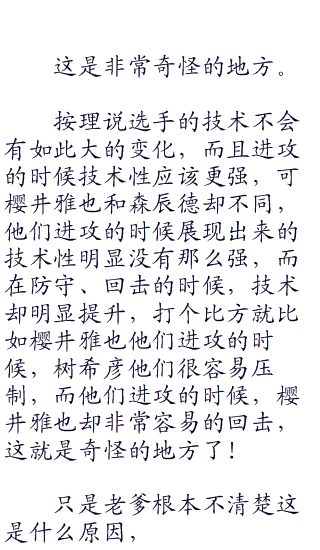 这是非常奇怪的地方。
按理说选手的技术不会
有如此大的变化，而且进攻
的时候技术性应该更强，可
樱井雅也和森辰德却不同，
他们进攻的时候展现出来的
技术性明显没有那么强，而
在防守、回击的时候，技术
却明显提升，打个比方就比
如樱井雅也他们进攻的时
候，树希彦他们很容易压
制，而他们进攻的时候，樱
井雅也却非常容易的回击，
这就是奇怪的地方了！
只是老爹根本不清楚这
是什么原因，